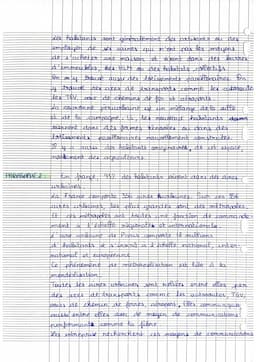 Les habitants sont généralement des ouvriers ou des
employés de ces usines qui n'ont pas les moyens
de s'acheter une maison et vivent dans des barres
d'immeubles, des HLM ou des habitats collectifs.
On y trouve aussi des lotissements pavillonnaires. On
y trouve des axes de transports comme les autoroutes
les TGV, voie de chemins de fer et aéroports.
La couronne périurbaine est un mélange de la ville
et de la campagne. Là, les nouveaux habitants
viennent dans des fermes rénovées ou dans des
lotissements pavillonnaires nouvellement construits.
Il y a aussi des habitants de cet espace,
notamment des agriculteurs.
En France, 95% des habitants vivent dans des aires
urbaines.
La France comporte aires urbaines. Sur ces
aires urbaines, les plus grandes sont des métropoles.
Et ces métropoles ont toutes une fonction de commande-
ment à l'échelle régionale et internationale.
L'aire urbaine de Paris comporte 12 millions
d'habitants et s'inscrit à l'échelle national, inter-
national et européenne.
Ce phénomène de métropolisation est liée à la
mondialisation.
Toutes les aires urbaines sont reliées entre elles par
des axes de transports comme les autoroutes, TGV,
voies de chemin de fer, aéroports. Elles communiquent
aussi entre elles avec de moyen de communications
performants comme la fibre.
Les entreprises recherchent ces moyens de communications